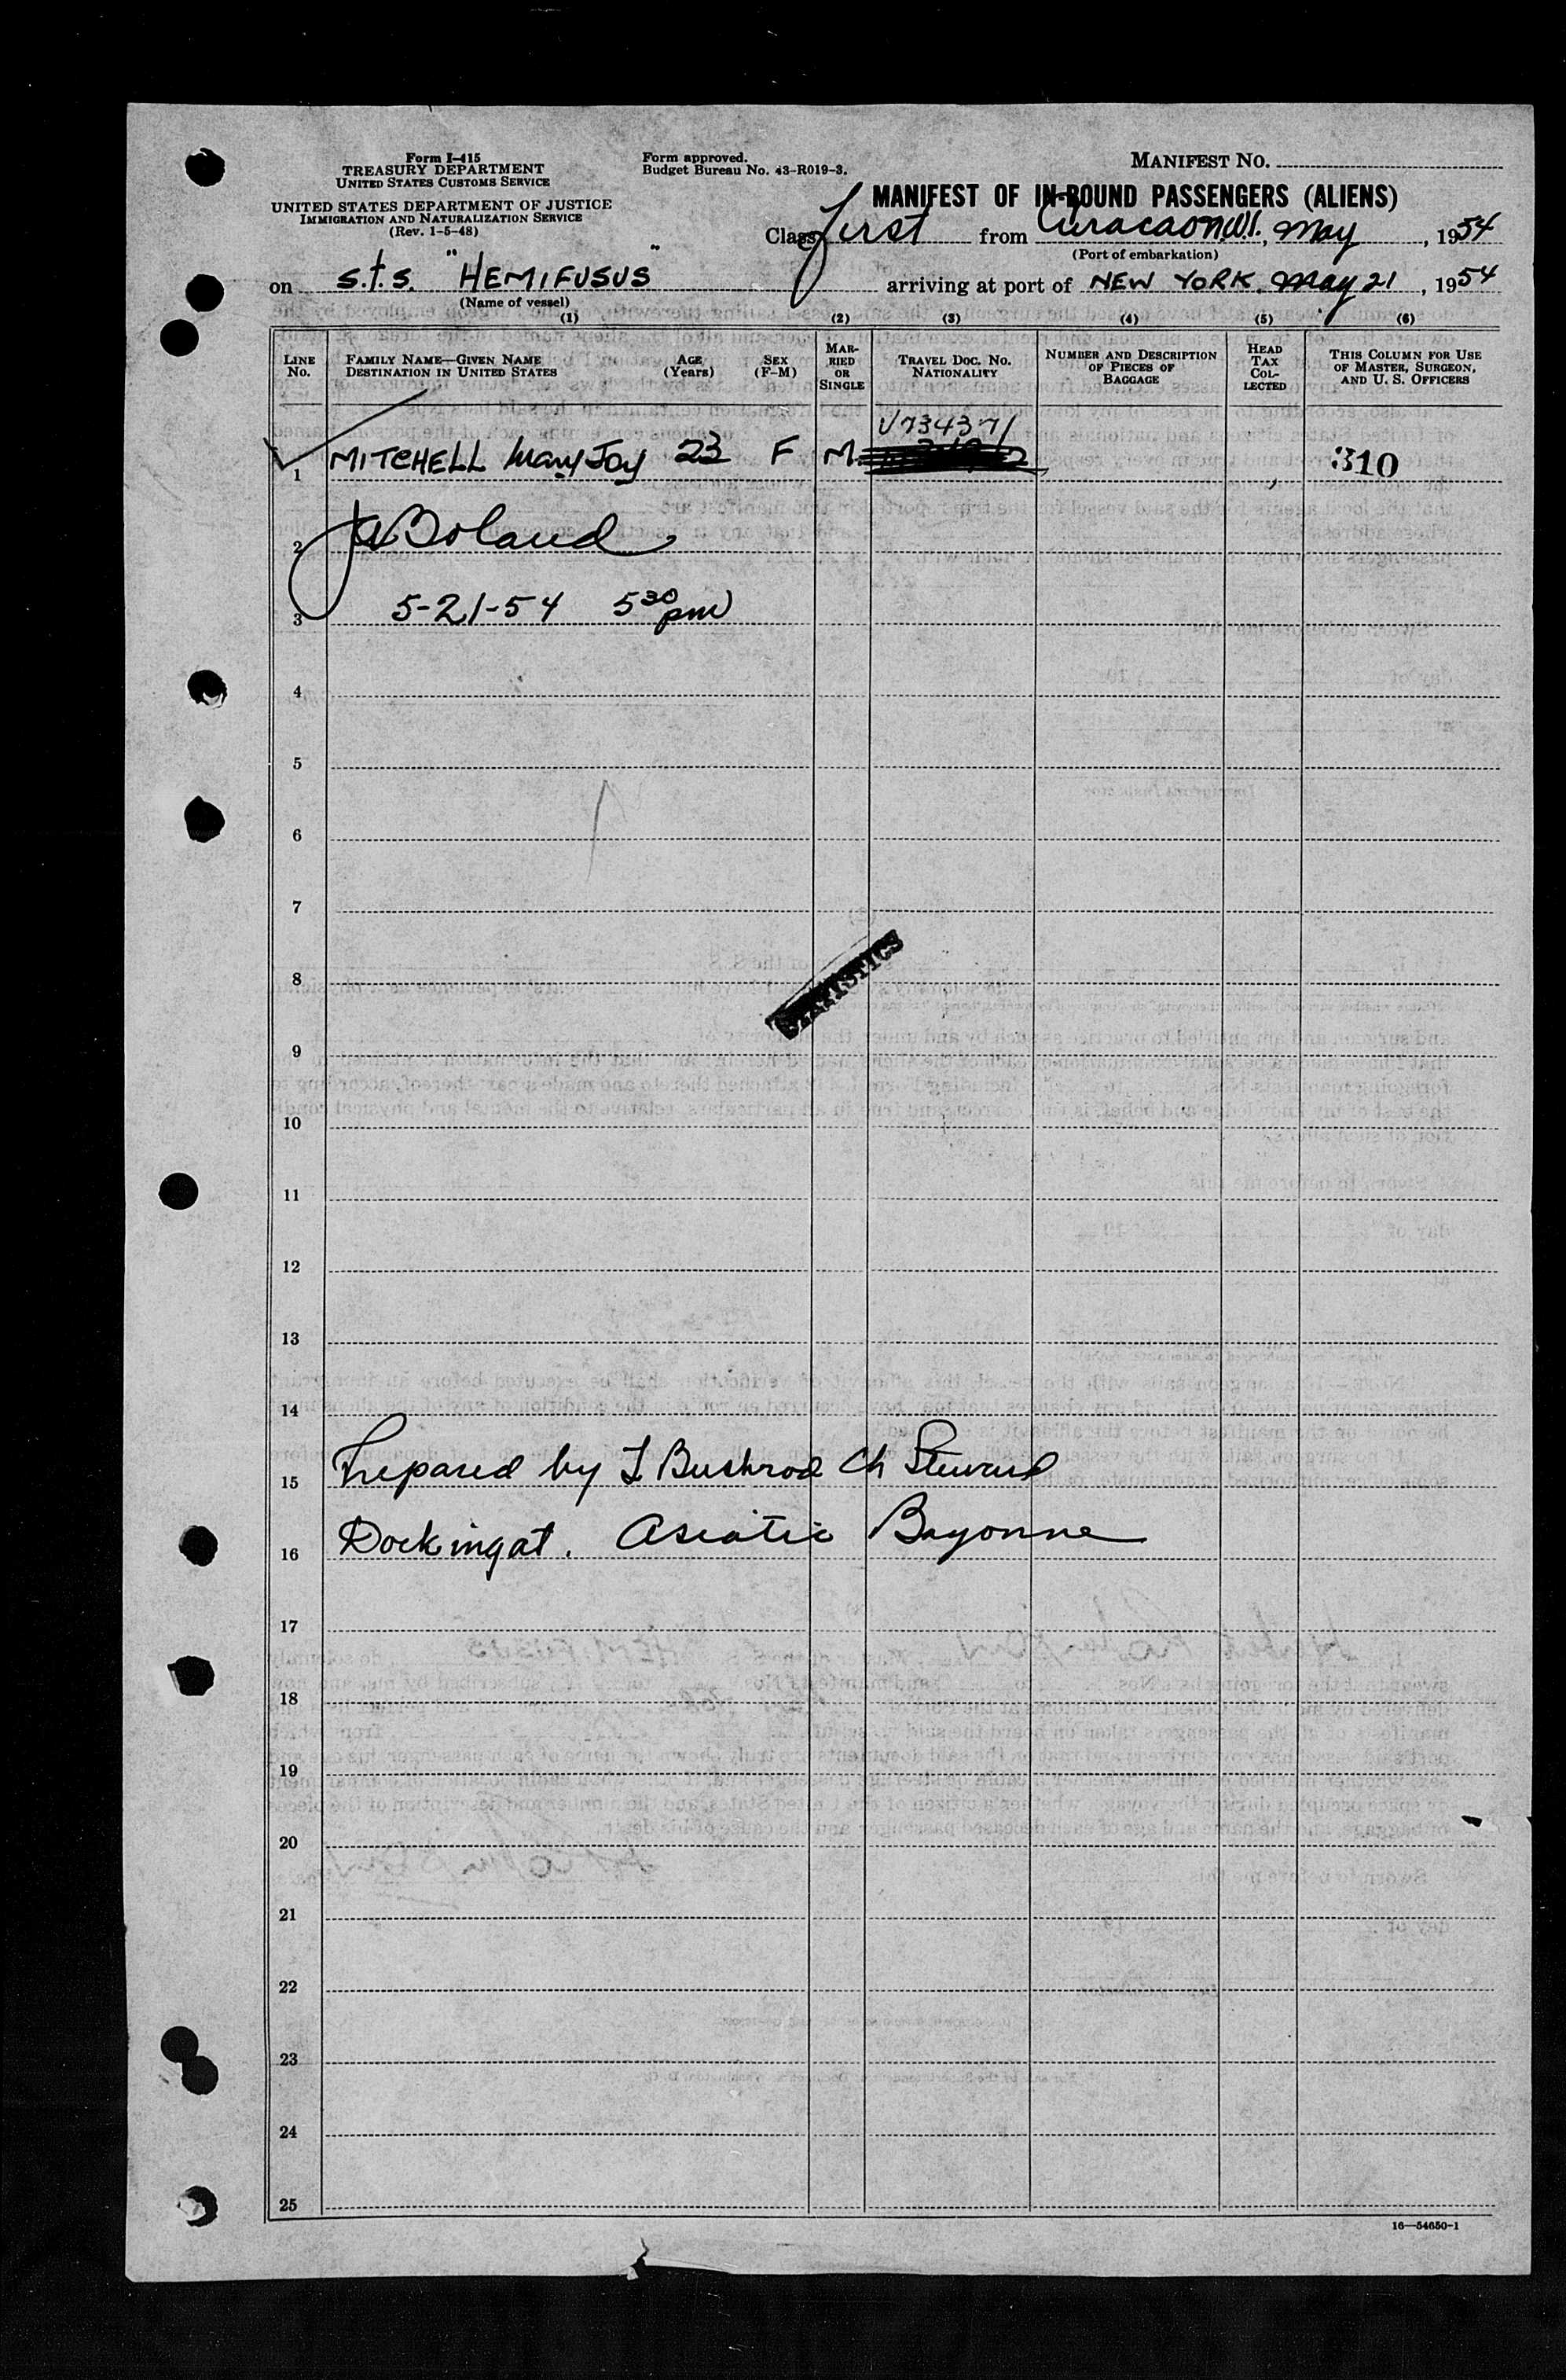 Form I-415
TREASURY DEPARTMENT
UNITED STATES CUSTOMS SERVICE
UNITED STATES DEPARTMENT OF JUSTICE
IMMIGRATION AND NATURALIZATION SERVICE
(Rev. 1-5-48)
Form approved.
Budget Bureau No. 43-R019-3.
MANIFEST NO.
MANIFEST OF IN-BOUND PASSENGERS (ALIENS)
Class first from Curacao N.W.I., May, 1954
(Port of embarkation)
on s.t.s. "HEMIFUSUS" arriving at port of NEW YORK, May 21, 1954
(Name of vessel)
(1) (2) (3) (4) (5) (6)
LINE No.
FAMILY NAME—GIVEN NAME
DESTINATION IN UNITED STATES
AGE (Years)
SEX (F-M)
MARRIED OR SINGLE
TRAVEL DOC. NO. NATIONALITY
NUMBER AND DESCRIPTION OF PIECES OF BAGGAGE
HEAD TAX COLLECTED
THIS COLUMN FOR USE OF MASTER, SURGEON, AND U. S. OFFICERS
V734371
1 MITCHELL Mary Joy 23 F M 310
2 Boland
3 5-21-54 5 30 pm
4
5
6
7
8
STATISTICS
9
10
11
12
13
14
15 Prepared by Bushrod Ch Steward
16 Docking at. Asiatic Bayonne
17
18
19
20
21
22
23
24
25
16—54650-1